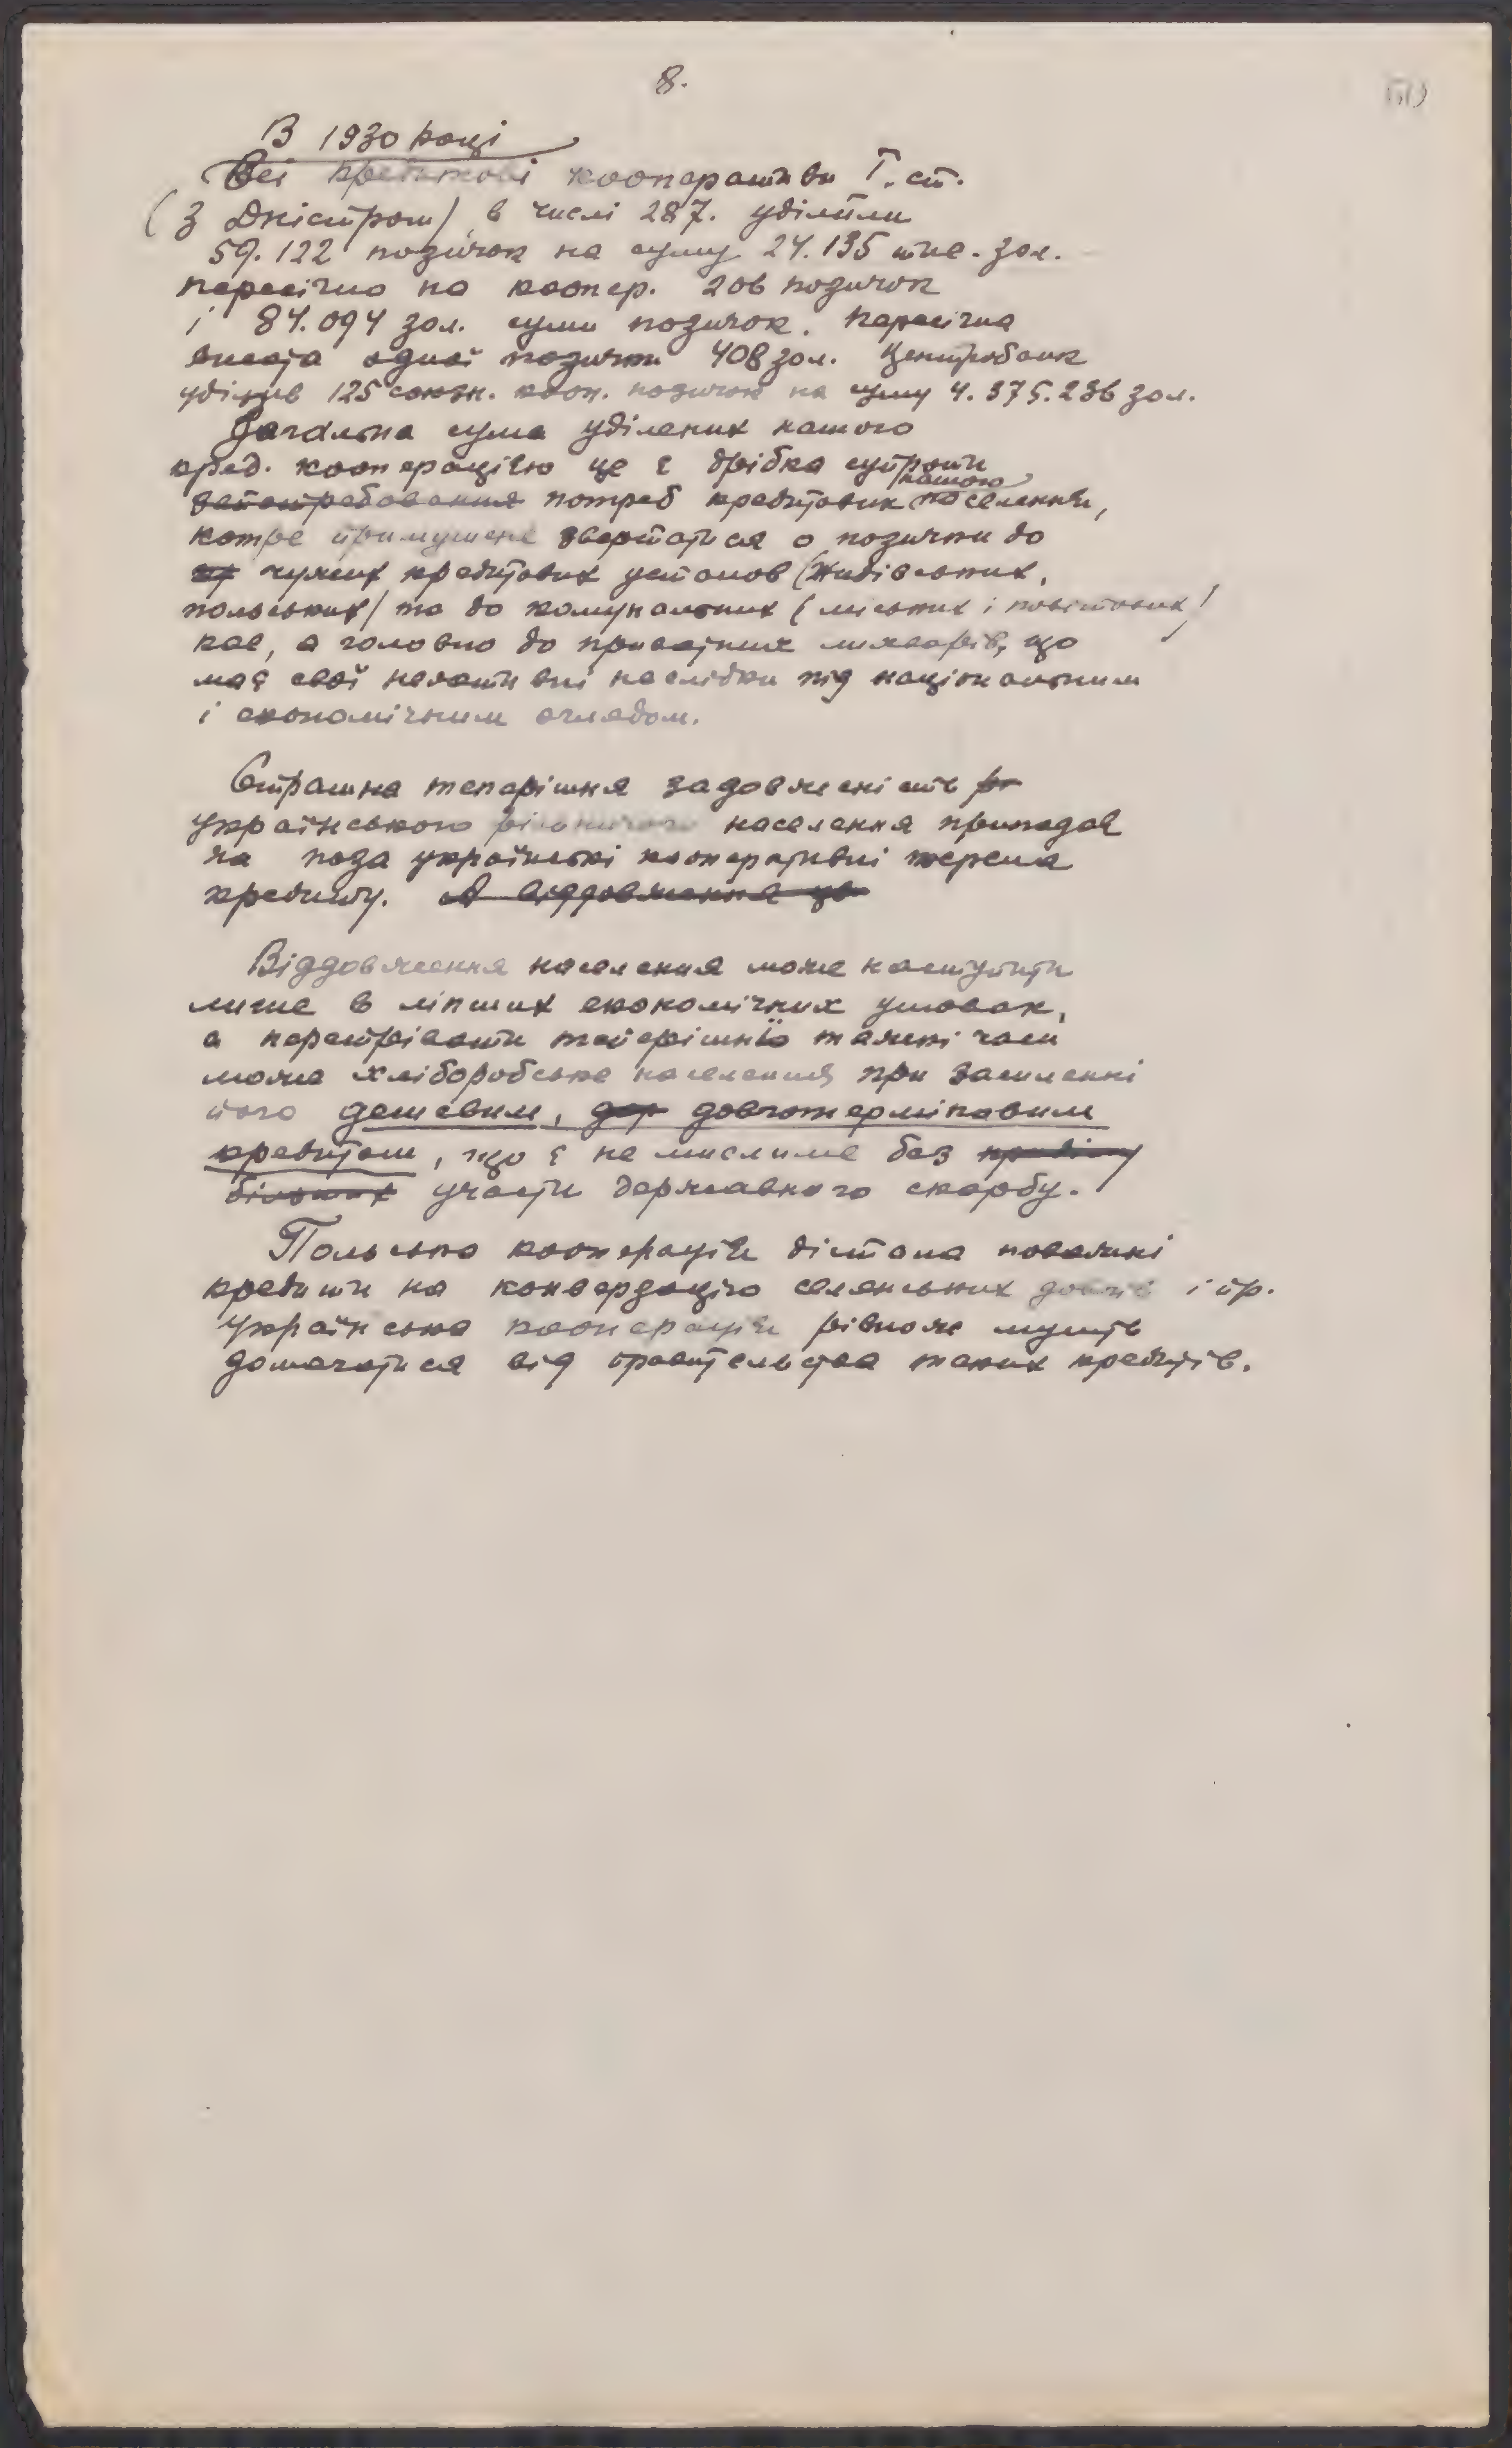 8.
В 1930 році
Всі кредитові кооперативи І. ст.
(з Дністром) в числі 287. уділили
59.122 позичок на суму 24.135 тис. зол.
пересічно на коопер. 206 позичок
і 84.094 зол. суми позичок. Пересічна
висота одної позички 408 зол. Центробанк
уділив 125 союзн. кооп. позичок на суму 4.375.236 зол.
Загальна сума уділених нашого
кред. кооперацією це є дрібка супроти
запотребовання потреб кредитових нашого населення,
котре примушене звертатися о позички до
чужих кредитових установ (жидівських,
польських) та до комунальних (міських і повітових)
кас, а головно до приватних лихварів, що
має свої негативні наслідки під національним
і економічним оглядом.
Страшна теперішня задовженість
українського рільничого населення припадає
на поза українські кооперативні жерела
кредиту. А віддовження це
Віддовження населення може наступити
лише в ліпших економічних умовах,
а перетрівати теперішні тяжкі часи
може хліборобське населення при засиленні
його дешевим, дов довготерміновим
кредитом, що є не мислиме без
більших участи державного скарбу.
Польська кооперація дістала поважні
кредити на конверзацію селянських довгів і пр.
Українська кооперація рівнож мусить
домагатися від правительства таких кредитів.